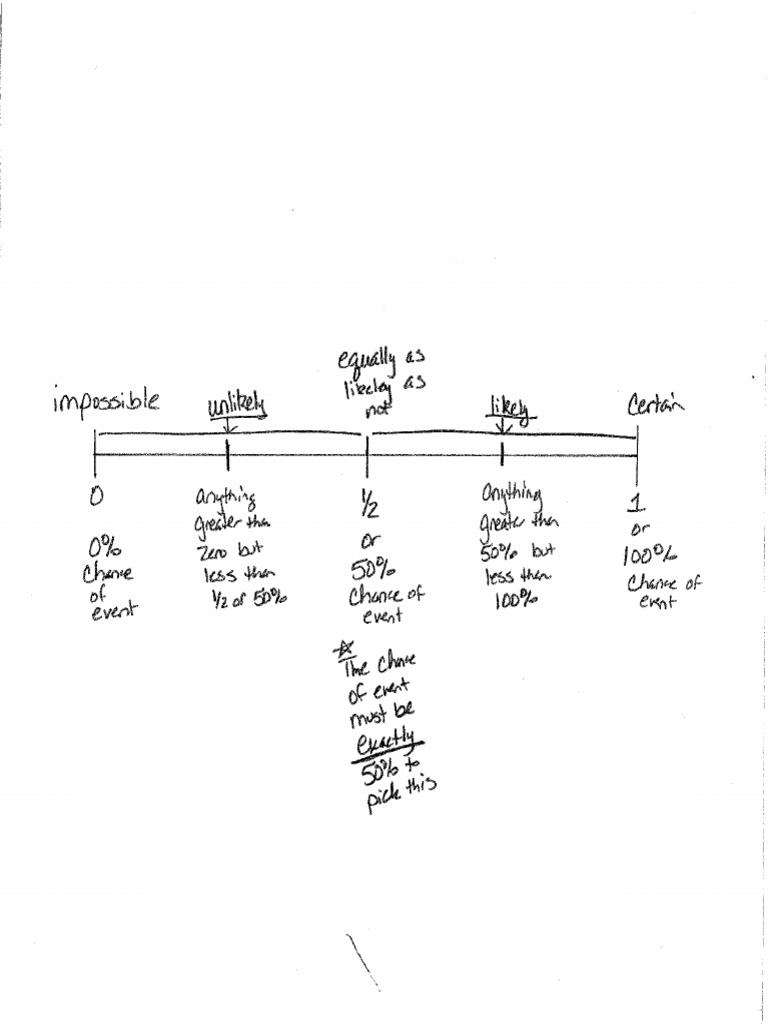 equally as
likeley as
not
impossible
unlikely
likely
Certain
0
0%
Chance
of
event
anything
greater than
zero but
less than
1/2 or 50%
1/2
or
50%
Chance of
event
☆
The chance
of event
must be
exactly
50% to
pick this
anything
greater than
50% but
less than
100%
1
or
100%
Chance of
event